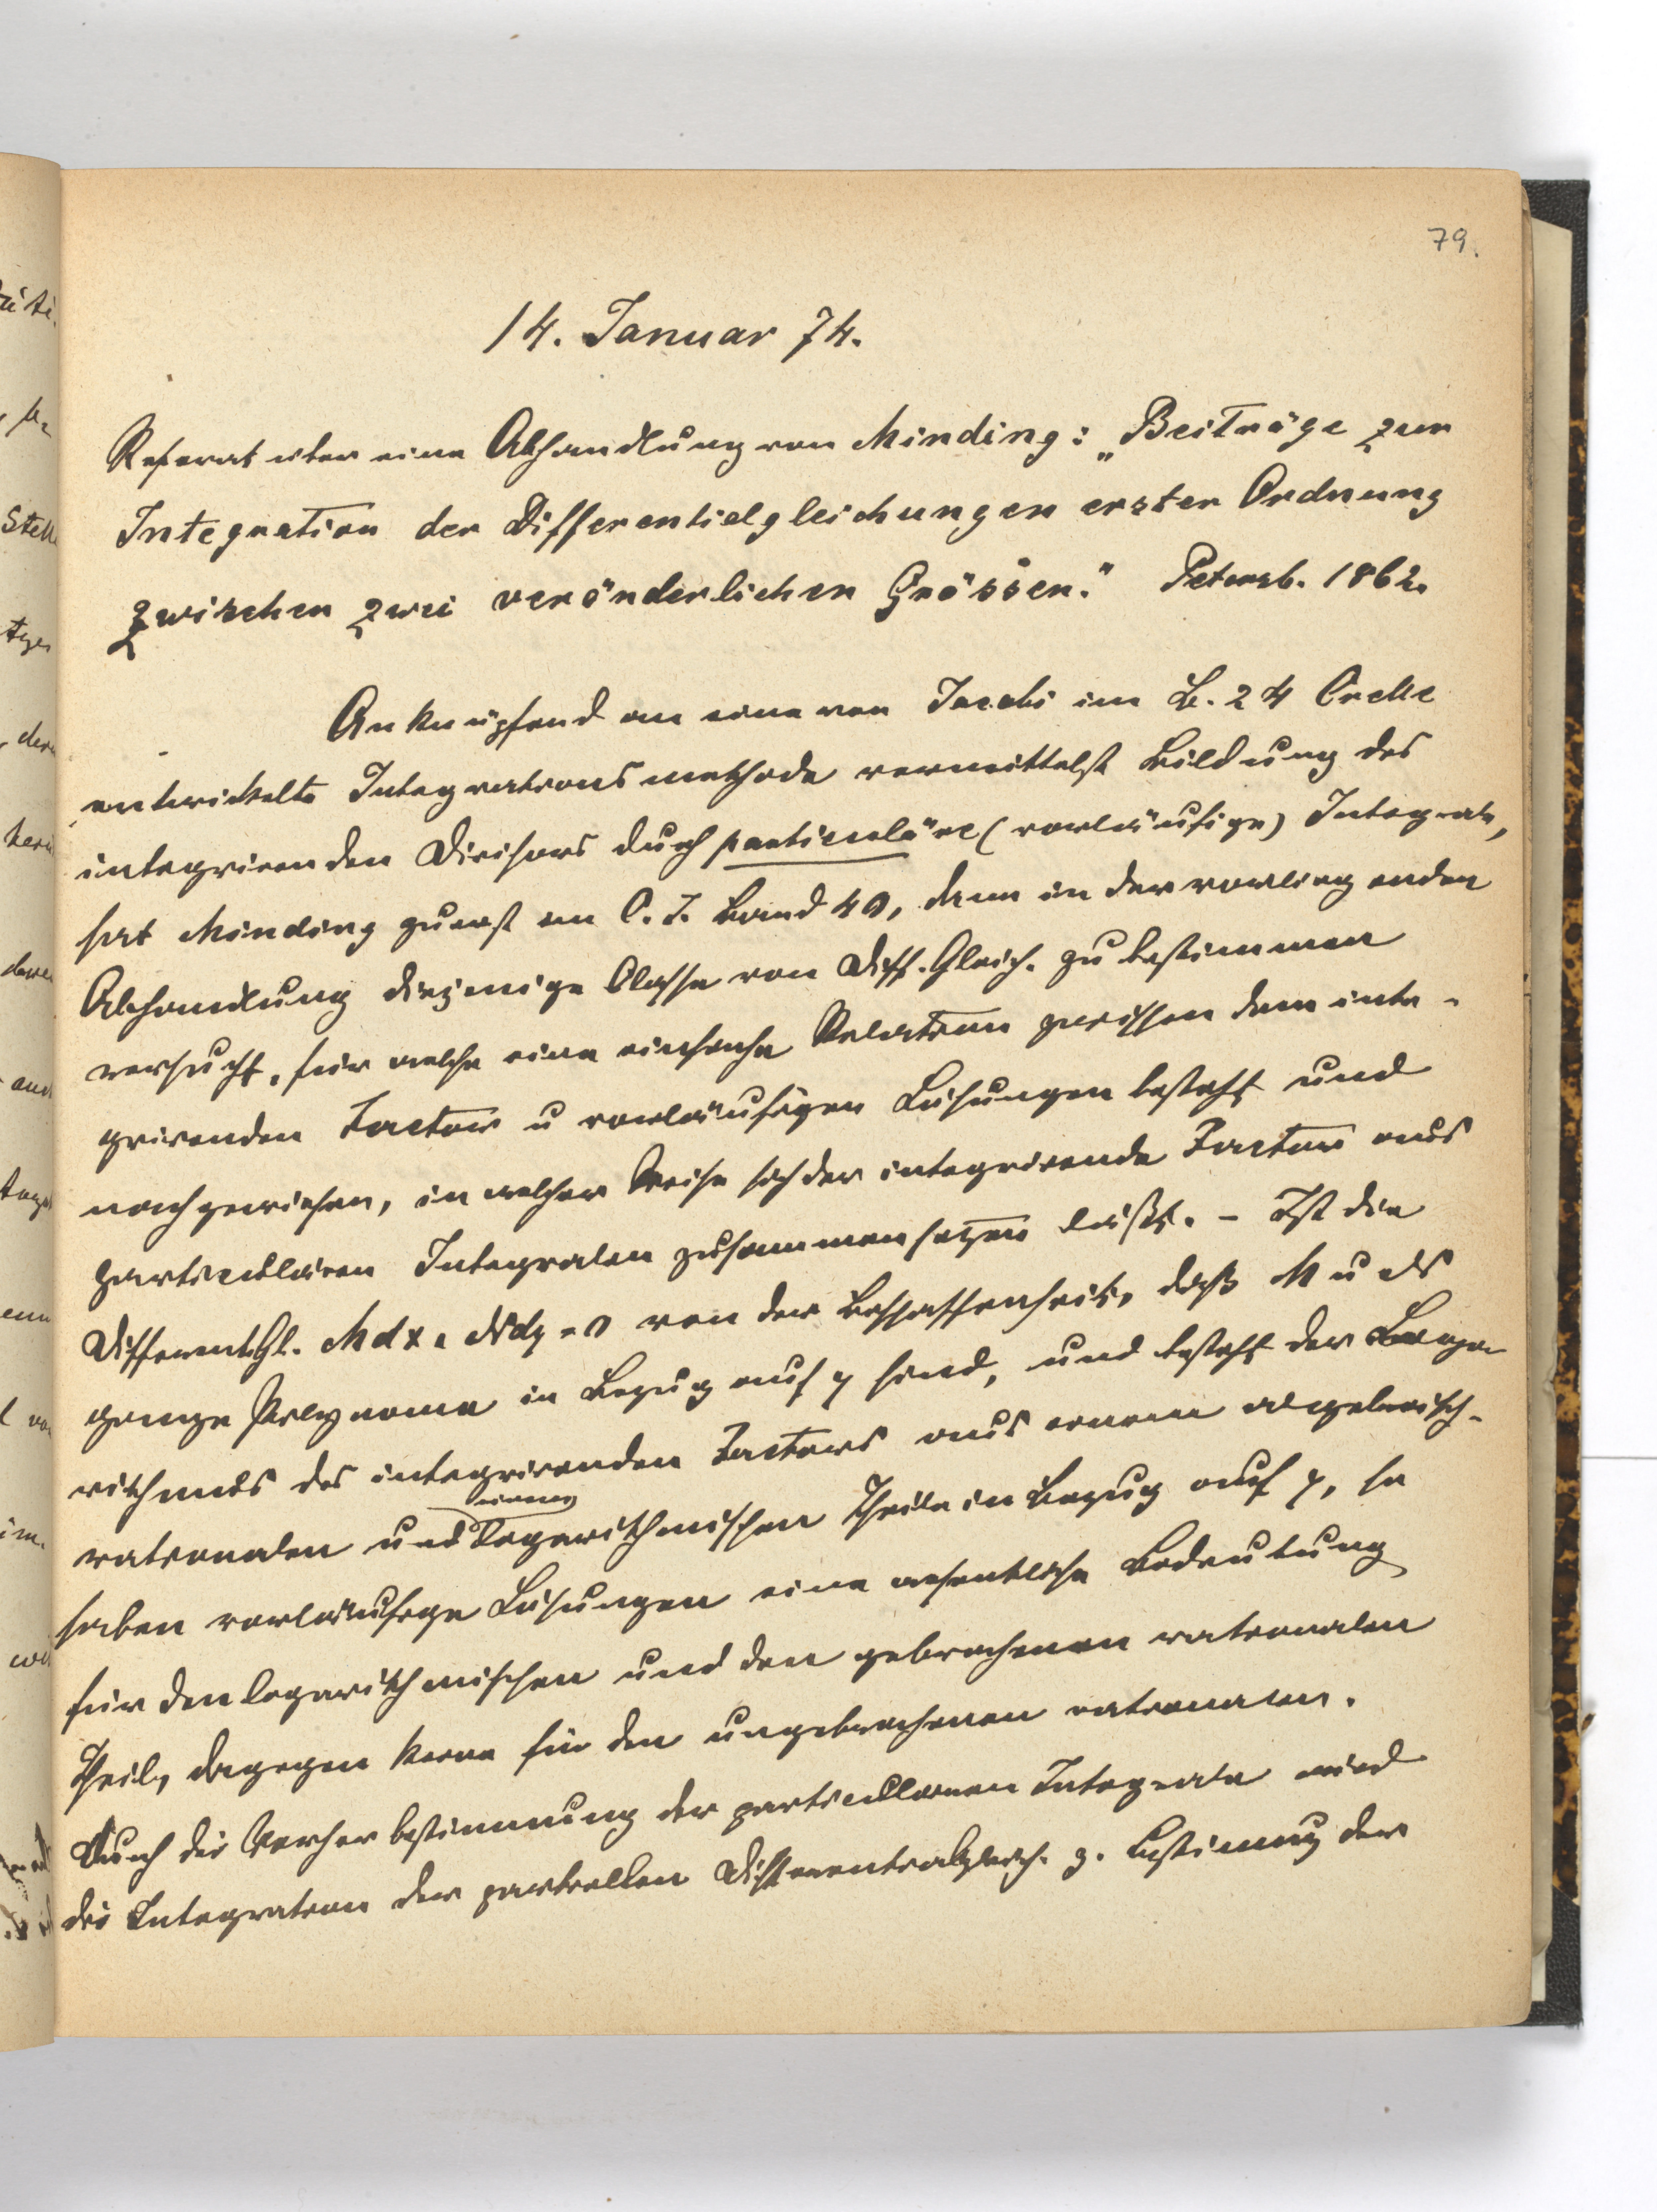 79.
14. Januar 74.
Referat über eine Abhandlung von Minding: „Beiträge zur
Integration der Differentialgleichungen erster Ordnung
zwischen zwei veränderlichen Grössen." Petersb. 1862.
Anknüpfend an eine von Jacobi im B. 24 Crelle
entwickelte Integrationsmethode vermittelst Bildung des
integrirenden Divisors durch particuläre (vorläufige) Integrale,
hat Minding zuerst im C. J. Band 40, dann in der vorliegenden
Abhandlung diejenige Classe von Diff. Gleich. zu bestimmen
versucht, für welche eine einfache Relation zwischen dem inte-
grirenden Factor u vorläufigen Lösungen besteht und
nachgewiesen, in welcher Weise sich der integrirende Factor aus
particulären Integralen zusammensetzen läßt. – Ist die
Different. Gl. Mdx + Ndy = 0 von der Beschaffenheit, daß M u N
ganze Polynome in Bezug auf y sind, und besteht der Loga-
rithmus des integrirenden Factors aus einem algebraisch-
rationalen und einem logarithmischen Theile in Bezug auf y, so
haben vorläufige Lösungen eine wesentliche Bedeutung
für den logarithmischen und den gebrochenen rationalen
Theil, dagegen keine für den ungebrochenen rationalen.
Durch die Vorherbestimmung der particulären Integrale wird
die Integration der partiellen Differentialgleich. z. Bestimung der